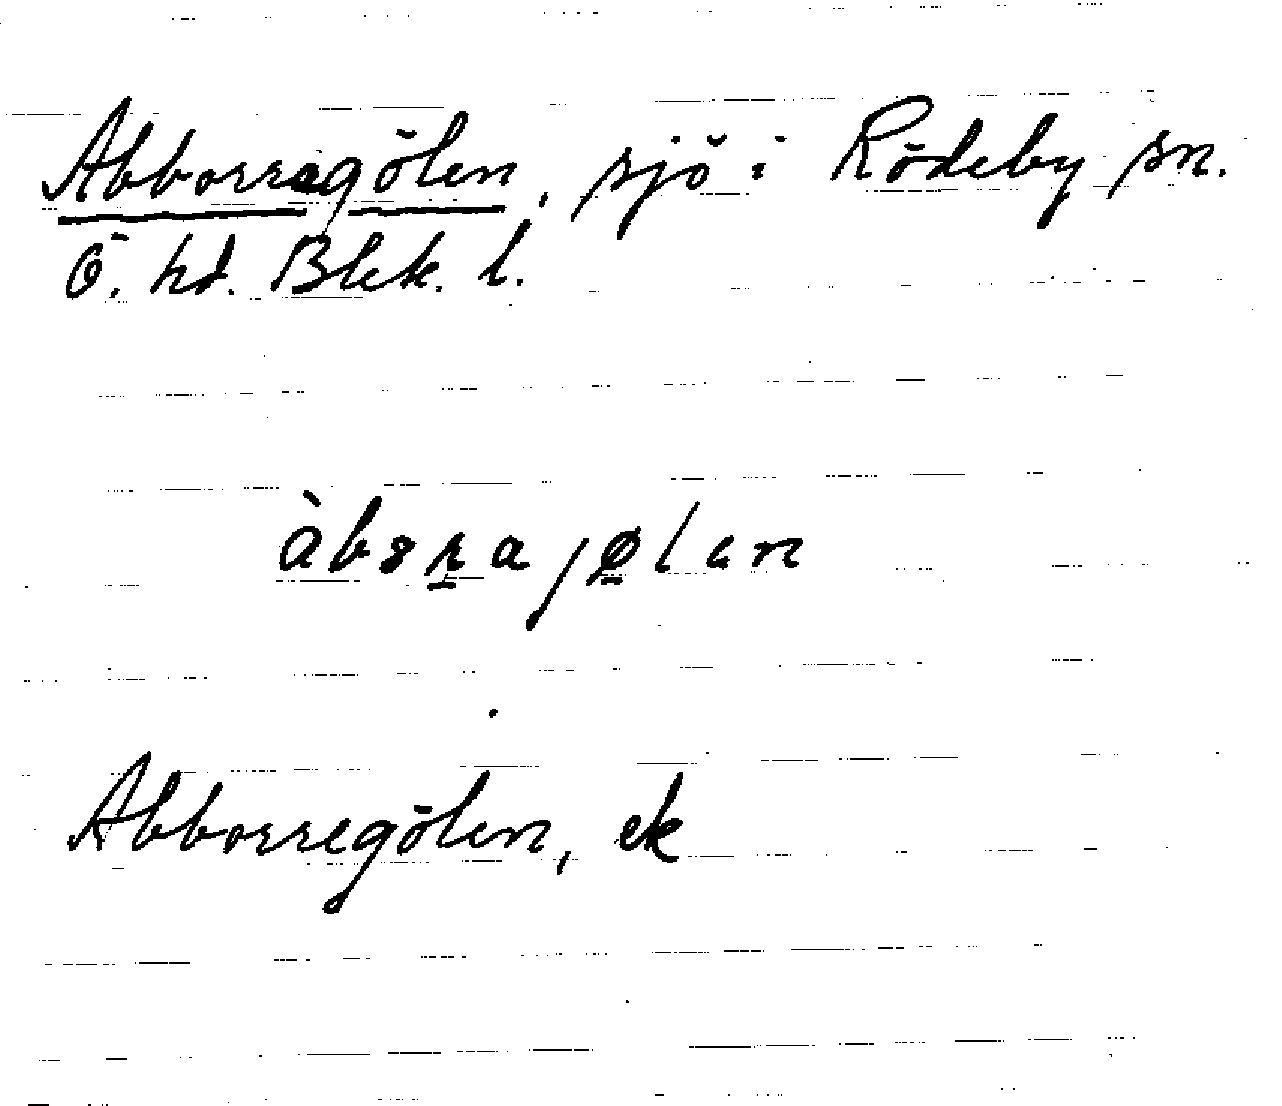 Abborragölen, sjö i Rödeby sn.
Ö. hd. Blek. l.
Abborregölen, ek